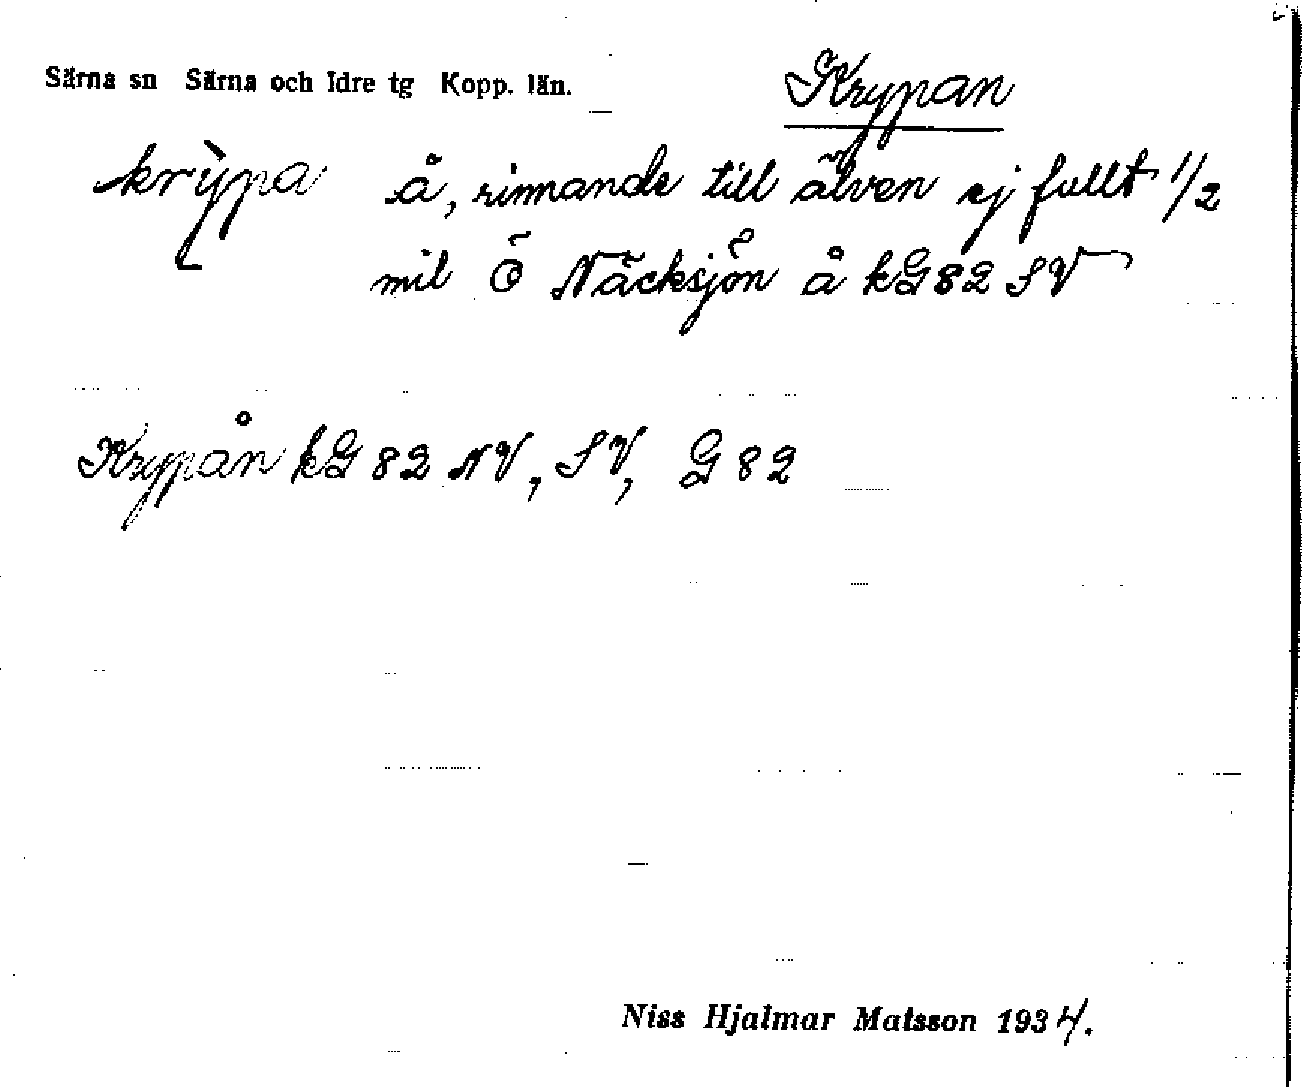 Särna sn Särna och Idre tg Kopp. län.
Krypan
krỳpa å, rinnande till älven ej fullt 1/2
mil Ö Näcksjön å kG82 SV
Krypån kG 82 NV, SV, G 82
Niss Hjalmar Matsson 1934.